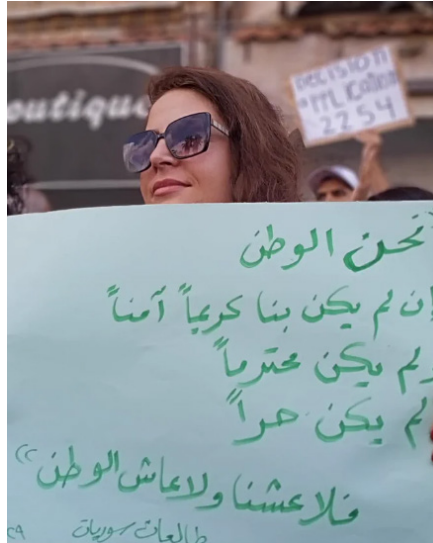 outique
DECISION
2254
نحن الوطن
إن لم يكن بنا كريماً آمناً
ولم يكن محترماً
لم يكن حراً
فلا عشنا ولا عاش الوطن"
طالعات سوريات